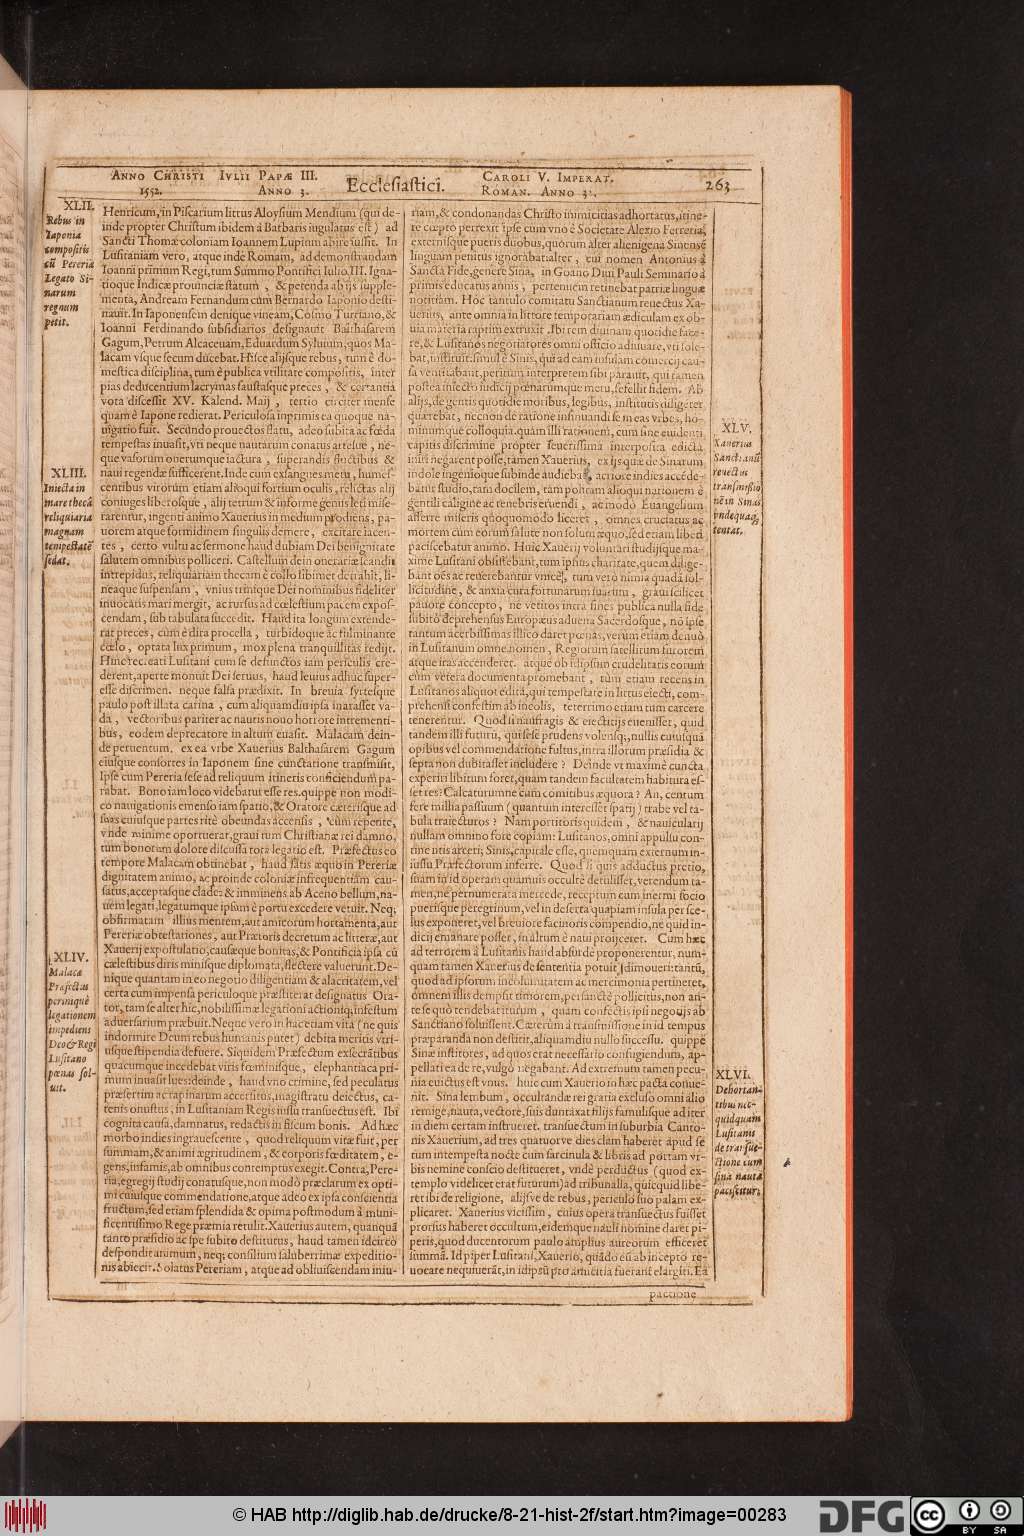 ANNO CHRISTI IVLII PAPÆ III. Ecclesiastici. CAROLI V. IMPERAT. 263
1552. ANNO 3. ROMAN. ANNO
XLII.
Rebus in
Iaponia
compositis
cũ Pereria
Legato Si-
narum
regnum
petit.
XLIII.
Iniecta in
mare thecâ
reliquiaria
magnam
tempestatẽ
sedat.
XLIV.
Malacæ
Præfectus
perinique
legationem
impediens
Deo & Regi
Lusitano
pœnas sol-
uit.
Henricum, in Piscarium littus Aloysium Mendium (qui de-
inde propter Christum ibidem à Barbaris iugulatus est) ad
Sancti Thomæ coloniam Ioannem Lupium abire iussit. In
Lusitaniam vero, atque inde Romam, ad demonstrandam
Ioanni primùm Regi, tum Summo Pontifici Iulio III. Igna-
tioque Indicæ prouinciæ statum, & petenda ab ijs supple-
menta, Andream Fernandum cum Bernardo Iaponio desti-
nauit. In Iaponensem denique vineam, Cosmo Turriano, &
Ioanni Ferdinando subsidiarios designauit Balthasarem
Gagum, Petrum Alcaceuam, Eduardum Syluium, quos Ma-
lacam vsque secum ducebat. Hisce alijsque rebus, tum è do-
mestica disciplina, tum è publica vtilitate compositis, inter
pias deducentium lacrymas faustasque preces, & certantia
vota discessit XV. Kalend. Maij, tertio circiter mense
quam è Iapone redierat. Periculosa inprimis ea quoque na-
uigatio fuit. Secundo prouectos flatu, adeo subita ac fœda
tempestas inuasit, vti neque nautarum conatus artesue, ne-
que vasorum onerumque iactura, superandis fluctibus &
naui regendæ sufficerent. Inde cum exangues metu, humes-
centibus virorum etiam alioqui fortium oculis, relictas alij
coniuges liberosque, alij tetrum & informe genus leti mise-
rarentur, ingenti animo Xauerius in medium prodiens, pa-
uorem atque formidinem singulis demere, excitare iacen-
tes, certo vultu ac sermone haud dubiam Dei benignitate
salutem omnibus polliceri. Castellum dein onerariæ scandit
intrepidus, reliquiariam thecam è collo sibimet detrahit, li-
neaque suspensam, vnius trinique Dei nominibus fideliter
inuocatis mari mergit, ac rursus ad cœlestium pacem expos-
cendam, sub tabulata succedit. Haud ita longum extende-
rat preces, cùm è dira procella, turbidoque ac fulminante
cœlo, optata lux primum, mox plena tranquillitas redijt.
Hinc recreati Lusitani cum se defunctos iam periculis cre-
derent, aperte monuit Dei seruus, haud leuius adhuc super-
esse discrimen. neque falsa prædixit. In breuia syrtesque
paulo post illata carina, cum aliquamdiu ipsa inarasset va-
da, vectoribus pariter ac nautis nouo horrore intrementi-
bus, eodem deprecatore in altum euasit. Malacam dein-
de peruentum. ex ea vrbe Xauerius Balthasarem Gagum
eiusque consortes in Iaponem sine cunctatione transmisit,
Ipse cum Pereria sese ad reliquum itineris conficiendum pa-
rabat. Bono iam loco videbatur esse res. quippe non modi-
co nauigationis emenso iam spatio, & Oratore cæterisque ad
suas cuiusque partes ritè obeundas accensis, cùm repente,
vnde minime oportuerat, graui tum Christianæ rei damno,
tum bonorum dolore discussa tota legatio est. Præfectus eo
tempore Malacam obtinebat, haud satis æquo in Pereriæ
dignitatem animo, ac proinde coloniæ infrequentiam cau-
satus, acceptasque clades & imminens ab Aceno bellum, na-
uem legati, legatumque ipsum è portu excedere vetuit. Neq;
obfirmatam illius mentem, aut amicorum hortamenta, aut
Pereriæ obtestationes, aut Prætoris decretum ac litteræ, aut
Xauerij expostulatio, causæque bonitas, & Pontificia ipsa cũ
cælestibus diris minisque diplomata, flectere valuerunt. De-
nique quantam in eo negotio diligentiam & alacritatem, vel
certa cum impensa periculoque præstiterat designatus Ora-
tor, tam se alter hic, nobilissimæ legationi actioniq; infestum
aduersarium præbuit. Neque vero in hac etiam vita (ne quis
indormire Deum rebus humanis putet) debita meritis viri-
usque stipendia defuere. Siquidem Præfectum exsecratibus
quacumque incedebat viris fœminisque, elephantiaca pri-
mum inuasit lues: deinde, haud vno crimine, sed peculatus
præsertim ac rapinarum accersitus, magistratu deiectus, ca-
tenis onustus, in Lusitaniam Regis iussu transuectus est. Ibi
cognita causa, damnatus, redactis in fiscum bonis. Ad hæc
morbo indies ingrauescente, quod reliquum vitæ fuit, per
summam, & animi ægritudinem, & corporis fœditatem, e-
gens, infamis, ab omnibus contemptus exegit. Contra, Pere-
ria, egregij studij conatusque, non modò præclarum ex opti-
mi cuiusque commendatione, atque adeo ex ipsa conscientia
fructum, sed etiam splendida & opima postmodum à muni-
ficentissimo Rege præmia retulit. Xauerius autem, quanquã
tanto præsidio ac spe subito destitutus, haud tamen idcirco
despondit animum, neq; consilium saluberrimæ expeditio-
nis abiecit. Solatus Pereriam, atque ad obliuiscendam iniu-
riam, & condonandas Christo inimicitias adhortatus, itine-
re cœpto perrexit ipse cum vno è Societate Alexio Ferreria,
externisque pueris duobus, quorum alter alienigena Sinensẽ
linguam penitus ignorabat: alter, cui nomen Antonius à
Sancta Fide, genere Sina, in Goano Diui Pauli Seminario à
primis educatus annis, pertenuem retinebat patriæ linguæ
notitiam. Hoc tantulo comitatu Sanctianum reuectus Xa-
uerius, ante omnia in littore temporariam ædiculam ex ob-
uia materia raptim extruxit. Ibi rem diuinam quotidie face-
re, & Lusitanos negotiatores omni officio adiuuare, vti sole-
bat, instituit. simul è Sinis, qui ad eam insulam comercij cau-
sa ventitabant, peritum interpretem sibi parauit, qui tamen
postea iniecto iudicij pœnarumque metu, fefellit fidem. Ab
alijs, de gentis quotidie moribus, legibus, institutis diligẽter
quærebat, necnon de ratione insinuandi se in eas vrbes, ho-
minumque colloquia. quam illi rationem, cum sine euidenti
capitis discrimine propter seuerissima interposita edicta
iniri negarent posse, tamen Xauerius, ex ijs quæ de Sinarum
indole ingenioque subinde audiebat, acriore indies accẽde-
batur studio, tam docilem, tam politam alioqui nationem è
gentili caligine ac tenebris eruendi, ac modo Euangelium
afferre miseris quoquomodo liceret, omnes cruciatus ac
mortem cum eorum salute non solum æquo, sed etiam libẽti
paciscebatur animo. Huic Xauerij voluntati studijsque ma-
xime Lusitani obsistebant, tum ipsius charitate, quem dilige-
bant oẽs ac reuerebantur vnicè, tum verò nimia quadã sol-
licitudine, & anxia cura fortunarum suarum, graui scilicet
pauore concepto, ne vetitos intra fines publica nulla fide
subitò deprehensus Europæus aduena Sacerdosque, nõ ipse
tantum acerbissimas illico daret pœnas, verùm etiam denuò
in Lusitanum omne nomen, Regiorum satellitum furorem
atque iras accenderet. atque ob id ipsum crudelitatis eorum
cum vetera documenta promebant, tùm etiam recens in
Lusitanos aliquot editã, qui tempestate in littus eiecti, com-
prehensi confestim ab incolis, teterrimo etiam tum carcere
tenerentur. Quod si naufragis & eiectitijs euenisset, quid
tandem illi futurũ, qui sese prudens volensq;, nullis cuiusquã
opibus vel commendatione fultus, intra illorum præsidia &
septa non dubitasset includere? Deinde vt maximè cuncta
experiri libitum foret, quam tandem facultatem habitura es-
set res? Calcaturumne eum comitibus æquora? An, centum
fere millia passuum (quantum interesset spatij) trabe vel ta-
bula traiecturos? Nam portitoris quidem, & nauicularij
nullam omnino fore copiam: Lusitanos, omni appulsu con-
tinentis arceri; Sinis, capitale esse, quemquam externum in-
iussu Præfectorum inferre. Quod si quis adductus pretio,
suam in id operam quamuis occultè detulisset, verendum ta-
men, ne pernumerata mercede, receptum cum inermi socio
puerisque peregrinum, vel in deserta quapiam insula per sce-
lus exponeret, vel breuiore facinoris compendio, ne quid in-
dicij emanare posset, in altum è naui proijceret. Cum hæc
ad terrorem à Lusitanis haud absurdè proponerentur, num-
quam tamen Xauerius de sententia potuit dimoueri: tantũ,
quod ad ipsorum incolumitatem ac mercimonia pertineret,
omnem illis dempsit timorem, persanctè pollicitus, non an-
te se quò tendebat iturum, quam confectis ipsi negotijs ab
Sanctiano soluissent. Cæterùm à transmissione in id tempus
præparanda non destitit, aliquamdiu nullo successu. quippe
Sinæ institores, ad quos erat necessario confugiendum, ap-
pellati ea de re, vulgò negabant. Ad extremum tamen pecu-
nia euictus est vnus. huic cum Xauerio in hæc pacta conue-
nit. Sina lembum, occultandæ rei gratia excluso omni alio
remige, nauta, vectore, suis duntaxat filijs famulisque ad iter
in diem certam instrueret. transuectum in suburbia Canto-
nis Xauerium, ad tres quatuorve dies clam haberet apud se
tum intempesta nocte cum sarcinula & libris ad portam vr-
bis nemine conscio destitueret, vnde perductus (quod ex-
templo videlicet erat futurum) ad tribunalia, quicquid libe-
ret ibi de religione, alijsve de rebus, periculo suo palam ex-
plicaret. Xauerius vicissim, cuius opera transuectus fuisset
prorsus haberet occultum, eidemque nauli nomine daret pi-
peris, quod ducentorum paulo amplius aureorum efficeret
summã. Id piper Lusitani, Xauerio, quãdo eũ ab incepto re-
uocare nequiuerãt, in id ipsũ pro amicitia fuerant elargiti. Ea
pactione
XLV.
Xauerius
Sanctianũ
reuectus
transmissio
nẽ in Sinas
vndequaq;
tentat.
XLVI.
Dehortan-
tibus nec-
quidquam
Lusitanis
de transue-
ctione cum
sina nauta
paciscitur;
© HAB http://diglib.hab.de/drucke/8-21-hist-2f/start.htm?image=00283
DFG
cc
BY SA